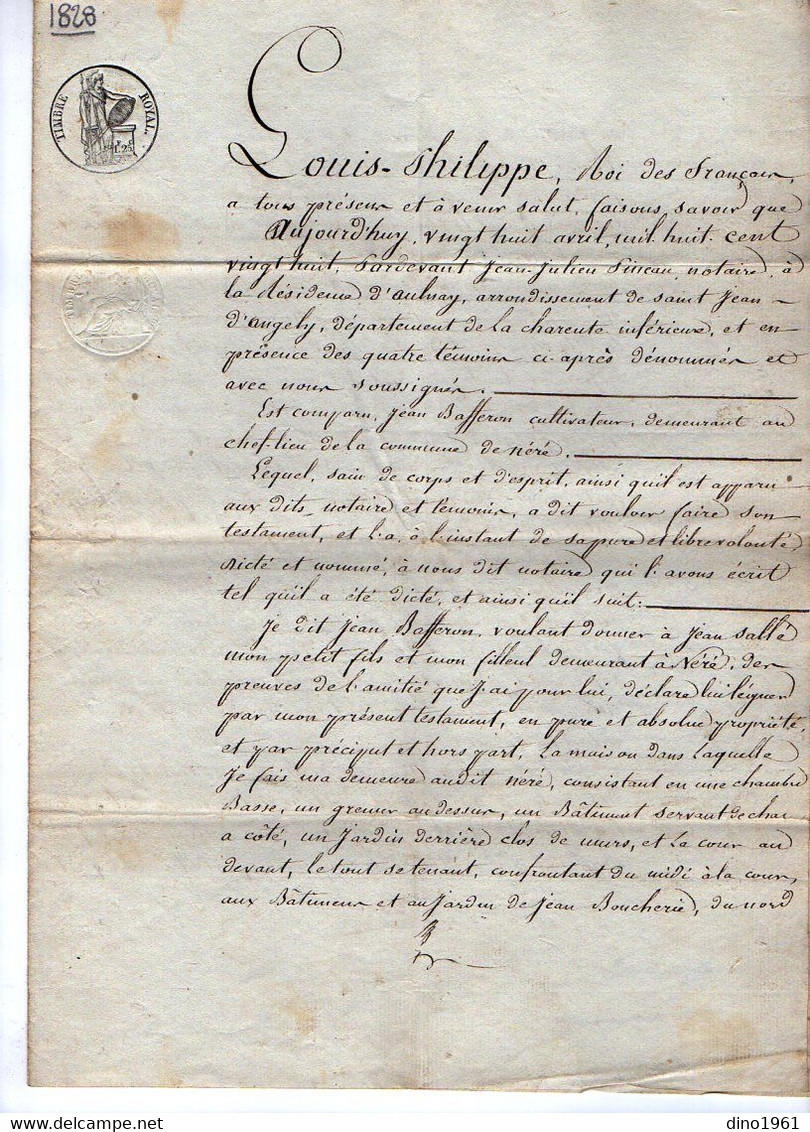 1828
TIMBRE ROYAL
1.25
Louis-Philippe, Roi des Français,
a tous présens et à venir salut, faisons savoir que
Aujourd'huy, vingt huit avril, mil huit cent
vingt huit, Pardevant Jean-Julien Pineau, notaire, à
la Résidence d'aulnay, arrondissement de saint Jean-
d'angely, département de la charente inférieure, et en
présence des quatre témoins ci-après dénommés et
avec nous soussignés.
Est comparu, Jean Bafferon cultivateur, demeurant au
chef-lieu de la commune de néré.
Lequel, sain de corps et d'esprit, ainsi qu'il est apparu
aux dits notaire et témoins, a dit vouloir faire son
testament, et l'a, à l'instant de sa pure et libre volonté
dicté et nommé, à nous dit notaire qui l'avons écrit
tel qu'il a été dicté, et ainsi qu'il suit:
Je dit Jean Bafferon, voulant donner à Jean Sallé
mon petit fils et mon filleul demeurant à Néré, des
preuves de l'amitié que J'ai pour lui, déclare lui léguer
par mon présent testament, en pure et absolue propriété,
et par préciput et hors part, la maison dans laquelle
Je fais ma demeure audit néré, consistant en une chambre
Basse, un grenier au dessus, un Bâtiment servant de chai
a côté, un Jardin derrière clos de murs, et la cour au
devant, le tout se tenant, confrontant du midi à la cour,
aux Bâtimens et au Jardin de Jean Boucherie, du nord
dino1961